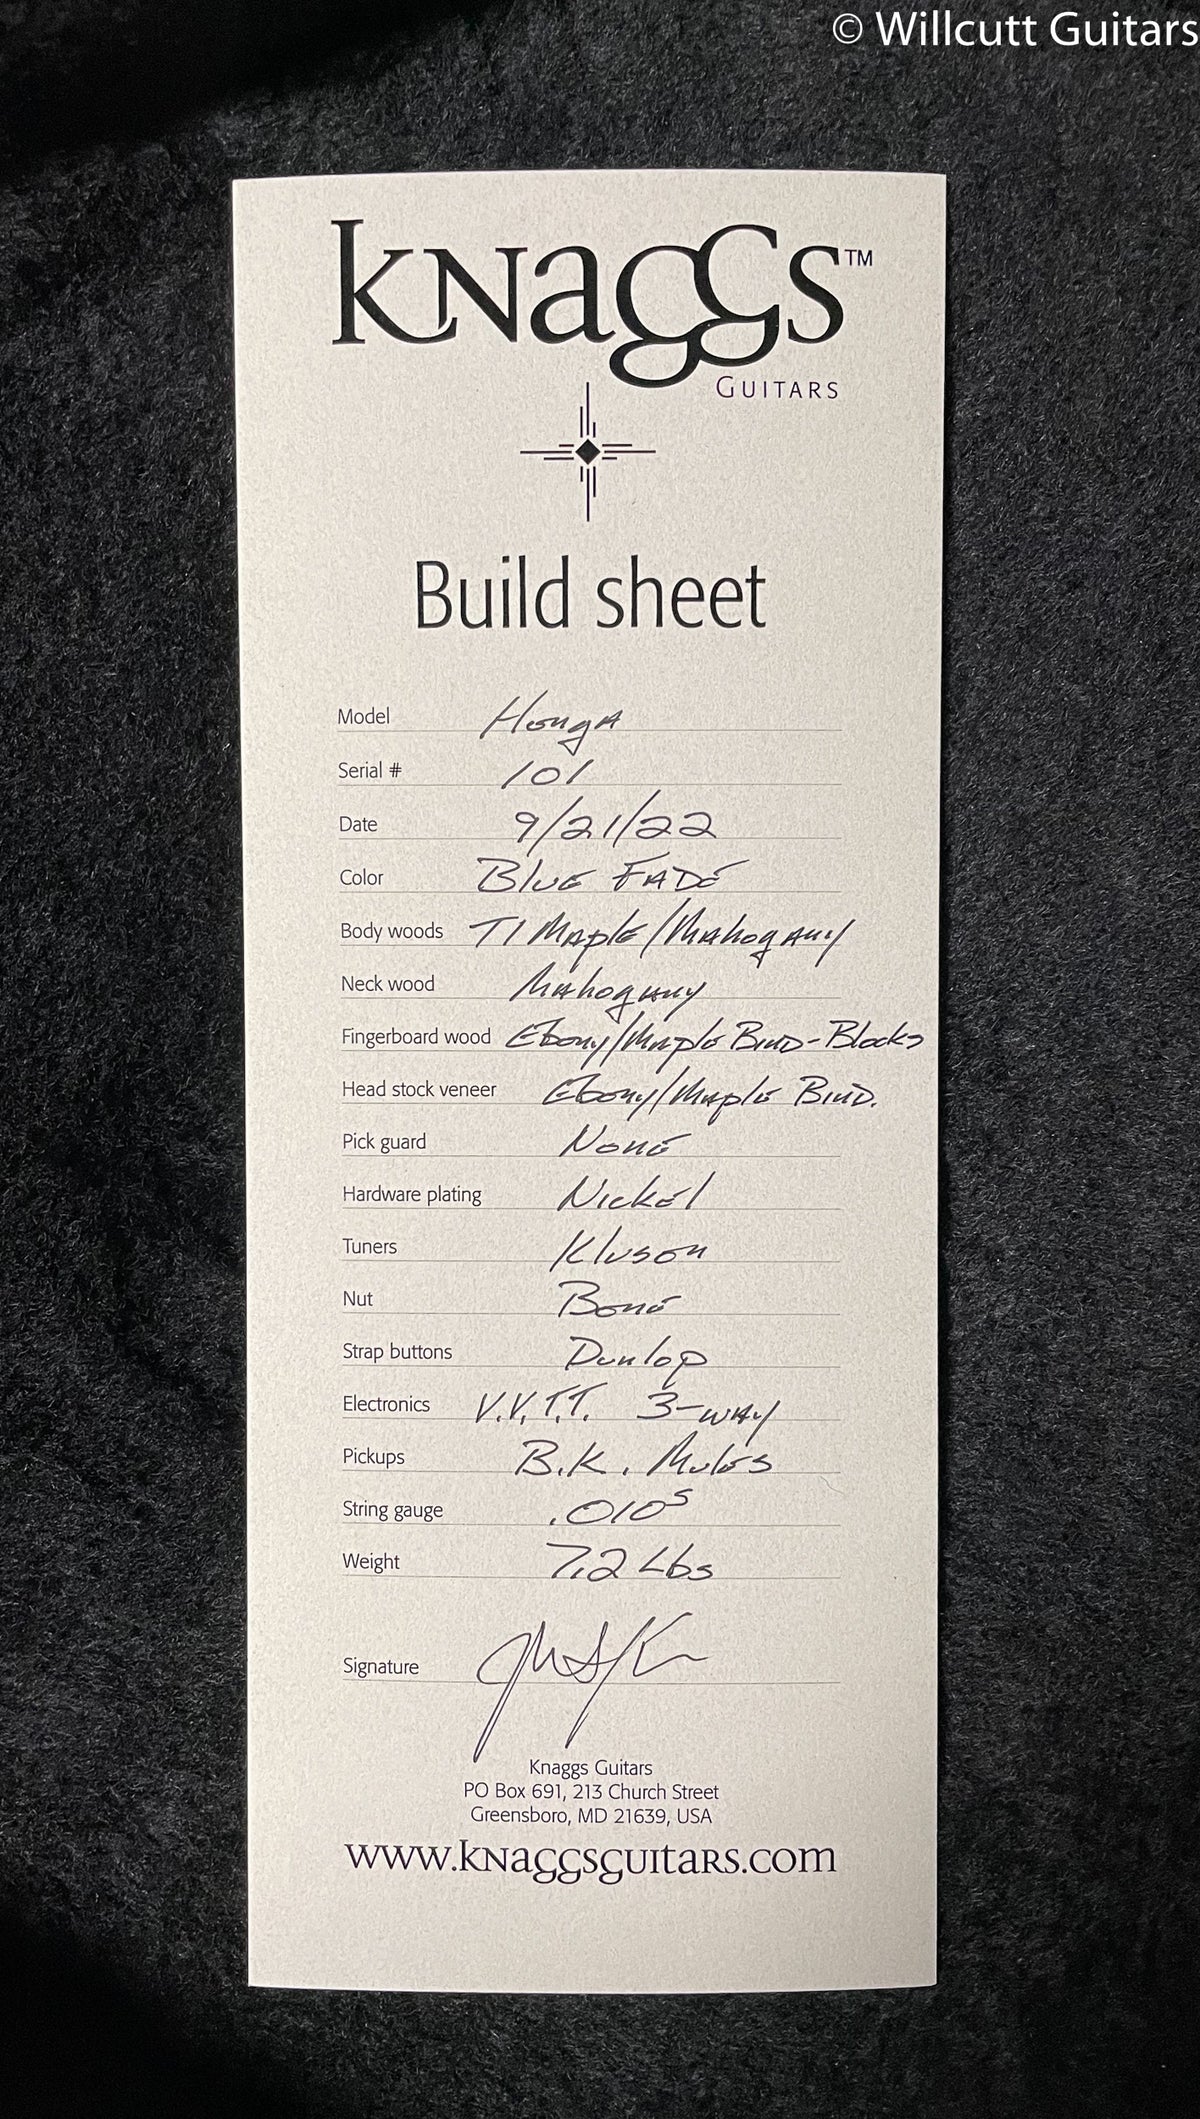 © Willcutt Guitars
Knaggs™
Guitars
Build sheet
Model Honga
Serial # 101
Date 9/21/22
Color Blue Fade
Body woods T1 Maple/Mahogany
Neck wood Mahogany
Fingerboard wood Ebony/Maple Bind-Blocks
Head stock veneer Ebony/Maple Bind.
Pick guard None
Hardware plating Nickel
Tuners Kluson
Nut Bone
Strap buttons Dunlop
Electronics V.V.T.T. 3-way
Pickups B.K. Mules
String gauge .010s
Weight 7.2 Lbs
Signature
Knaggs Guitars
PO Box 691, 213 Church Street
Greensboro, MD 21639, USA
www.knaggsguitars.com